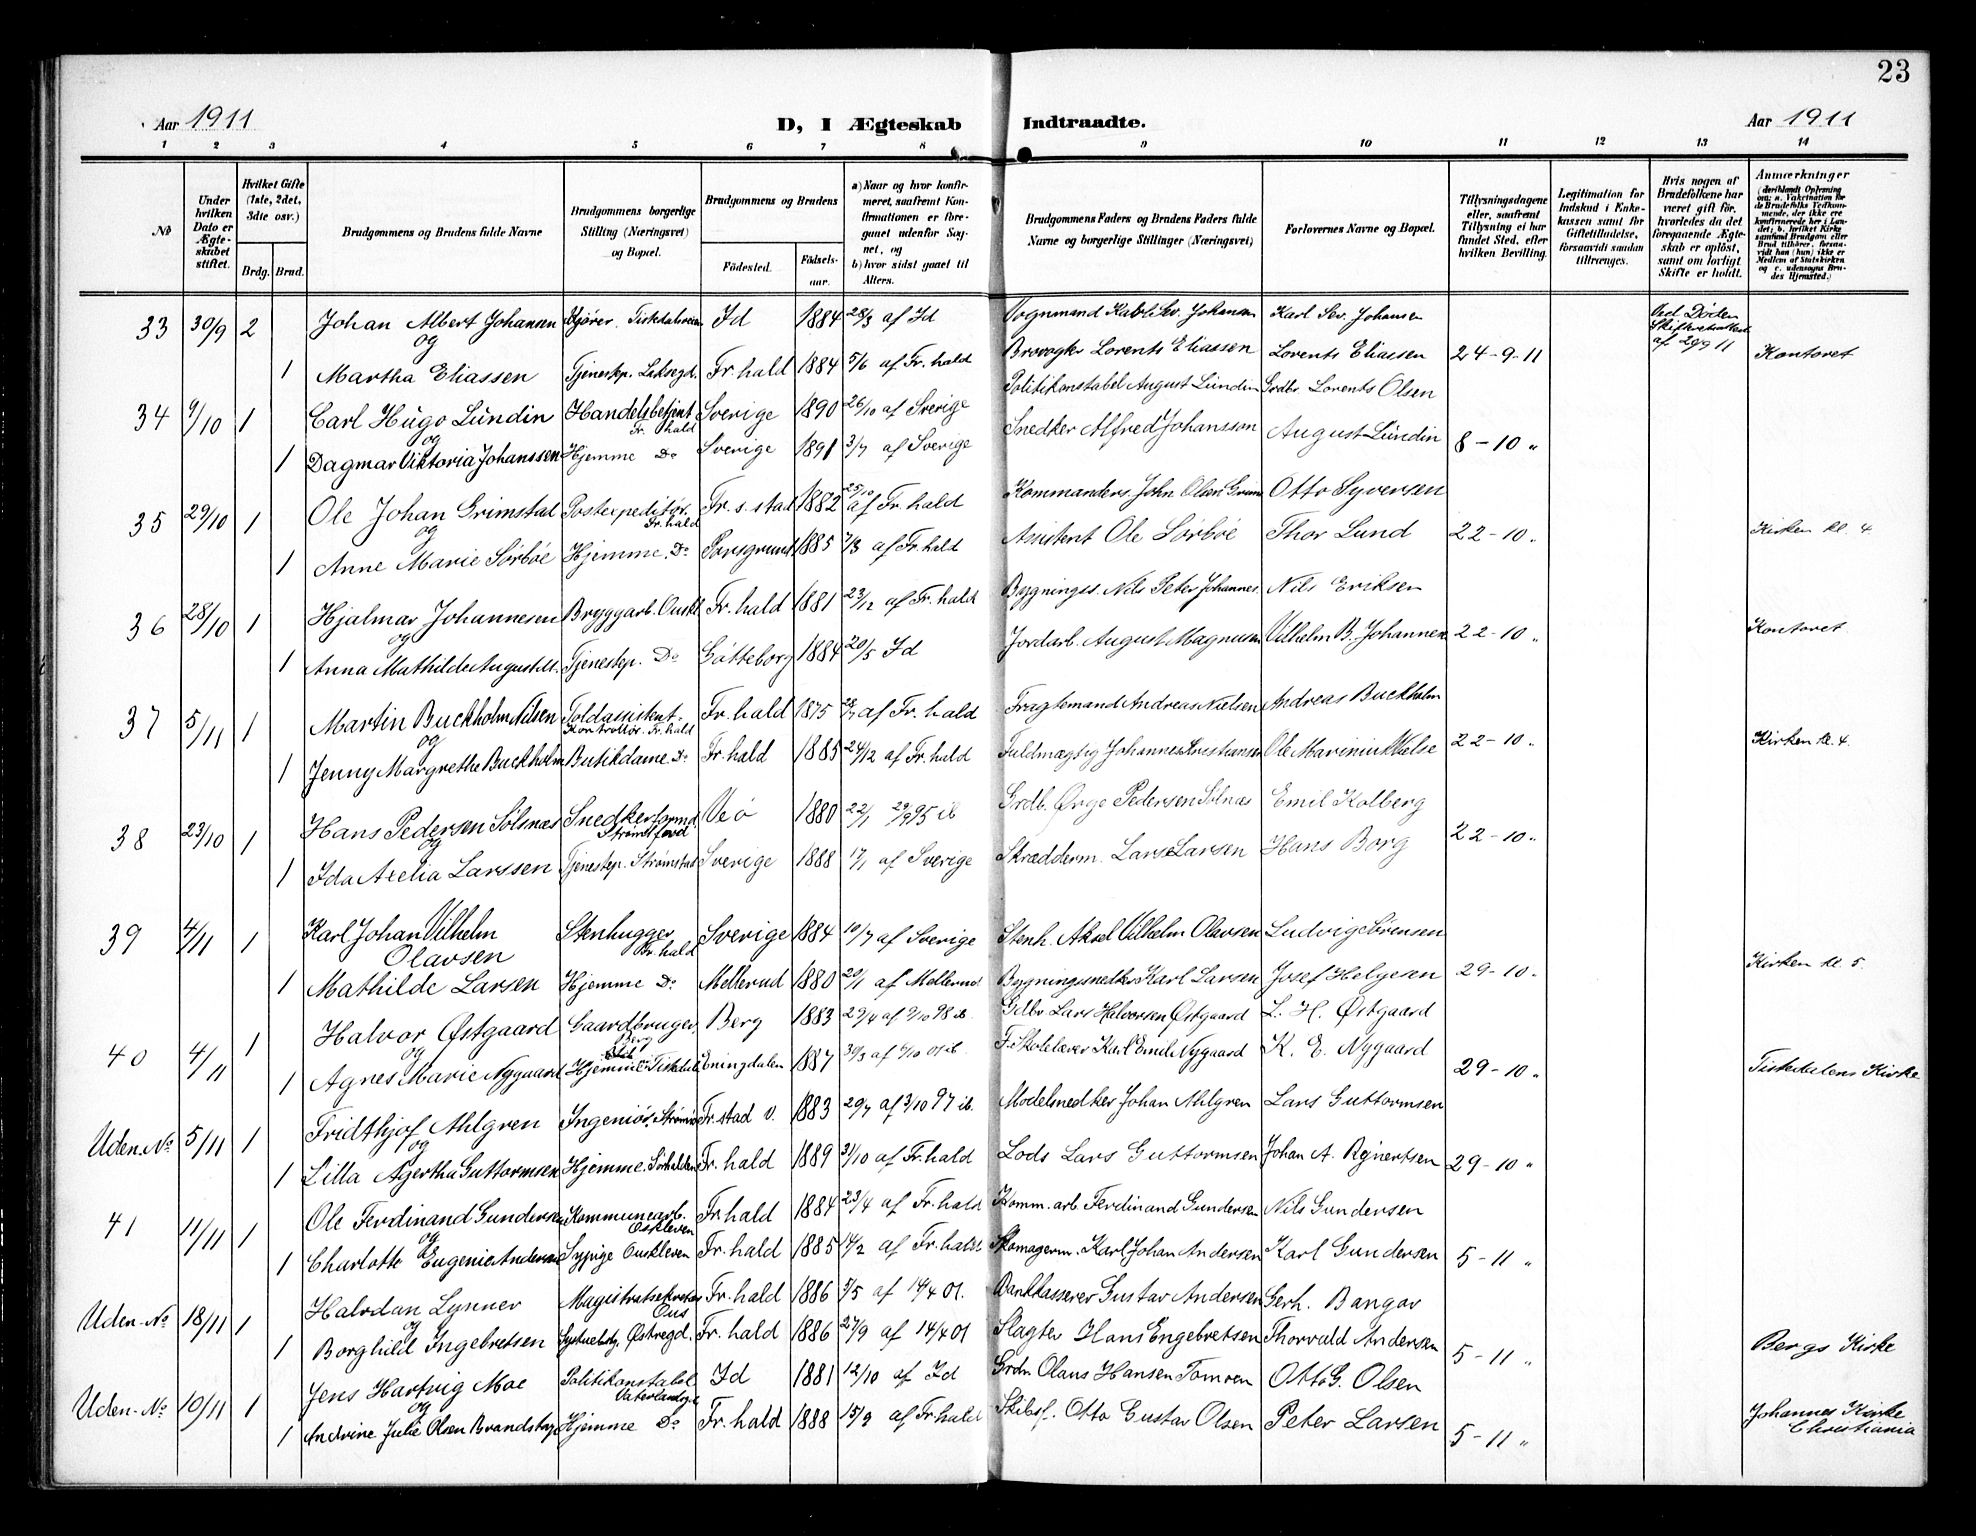 23
Aar 1911 D, I Ægteskab Indtraadte. Aar 1911
1 2 3 4 5 6 7 8 9 10 11 12 13 14
No
Under hvilken Dato er Ægteskabet stiftet.
Hvilket Gifte (1ste, 2det, 3die osv.)
Brdg. Brud.
Brudgommens og Brudens fulde Navne
Brudgommens borgerlige Stilling (Næringsvei) og Bopæl.
Brudgommens og Brudens
Fødested. Fødselsaar.
a) Naar og hvor konfirmeret, saafremt Konfirmationen er foregaaet udenfor Sognet, og
b) hvor sidst gaaet til Alters.
Brudgommens Faders og Brudens Faders fulde Navne og borgerlige Stillinger (Næringsvei)
Forlovernes Navne og Bopæl.
Tillysningsdagene eller, saafremt Tillysning ei har fundet Sted, efter hvilken Bevilling.
Legitimation for Indskud i Enkekassen samt for Giftetilladelse, forsaavidt saadan tiltrænges.
Hvis nogen af Brudefolkene har været gift før, hvorledes da det foregaaende Ægteskab er opløst, samt om lovligt Skifte er holdt.
Anmærkninger
33 30/9 2 Johan Albert Johansen Kjører. Tistedalsveien Id 1884 28/3 af Id Vognmand Johansen Karl Sev. Johansen Ved Døden
og
1 Martha Eliassen Tjenestep. Fr.hald 1884 5/6 af Fr.hald Brovogter Lorents Eliassen Lorents Eliassen 24-9-11 Kontoret
34 9/10 1 Carl Hugo Lundin Handelsbetjent Fr.hald Sverige 1890 26/10 af Sverige Politikonstabel August Lundin Grdbr Lorents Olsen
og
1 Dagmar Viktoria Johanssen Hjemme Do Sverige 1891 3/7 af Sverige Snedker Alfred Johansson August Lundin 8-10 "
35 29/10 1 Ole Johan Grimstad Postexpeditør. Fr.hald Fr.s.stad 1882 25/10 af Fr.hald Kommanders. John Olsen Otto Syversen
og
1 Anne Marie Sørbøe Hjemme. Do Porsgrund 1885 7/3 af Fr.hald Assistent Ole Sørbøe Thor Lund 22-10 " Kirken kl. 4
36 28/10 1 Hjalmar Johannesen Bryggarb. Fr.hald 1881 23/12 af Fr.hald Bygningss. Nils Peter Johannes. Nils Eriksen
og
1 Anna Mathilde Tjenestep. Do Götteborg 1884 20/5 Id Jordarb. August Magnusen Vilhelm B. Johannen 22-10 " Kontoret
37 5/11 1 Martin Buckholm Nilsen Toldassistent. Kontrollør. Fr.hald Fr.hald 1875 af Fr.hald Fragtemand Andreas Nielsen Andreas Buckholm
og
1 Jenny Margrethe Buckholm Butikdame Do Fr.hald 1885 24/12 af Fr.hald Fuldmægtig Johannes Kristiansen Ole Marinius 22-10 " Kirken kl. 4.
38 23/10 1 Hans Pedersen Sølsnæs Snedkerformd Veø 1880 22/1 29/9 95 ib Grdb. Ørge Pedersen Sølnæs Emil Kolberg
og
1 Ida Larssen Tjenestep. Strømstad Sverige 1888 17/1 af Sverige Skrædderm. Lars Larsen Hans Borg 22-10 "
39 4/11 1 Karl Johan Vilhelm Olavsen Stenhugger Fr.hald Sverige 1884 10/7 af Sverige Stenh. Aksel Vilhelm Olavsen Ludvig Sørensen
1 Mathilde Larsen Hjemme Do Mellerud 1880 20/1 af Mellerud Bygningssnedker Karl Larsen Josef Helgesen 29-10 " Kirken kl. 5.
40 4/11 1 Halvor Østgaard Gaardbruger Berg Berg 1883 29/4 af 9/10 98 ib. Gdbr Lars Halvorsen Østgaard L. H. Østgaard
og
1 Agnes Marie Nygaard Hjemme Enningdalen 1887 30/3 af 6/10 01 ib. F. Skolelærer Karl Emil Nygaard K. E. Nygaard 29-10 " Tistedalens Kirke
Uden No 5/11 1 Fridthjof Ahlgren Ingeniør. Fr.stad v. 1883 29/7 af 3/10 97 ib. Modelsnedker Johan Ahlgren Lars Guttormsen
og
1 Lilla Agertha Guttormsen Hjemme. Fr.hald 1889 31/10 af Fr.hald Lods Lars Guttormsen Johan A. Rejnertsen 29-10 "
41 11/11 1 Ole Ferdinand Gundersen Kommunearb. Ouskleven Fr.hald 1884 23/4 af Fr.hald Komm.arb. Ferdinand Gundersen Nils Gundersen
og
1 Charlotte Eugenie Andersen Sypige Ouskleven Fr.hald 1885 14/2 af Fr.hald Skomagerm. Karl Johan Andersen Karl Gundersen 5-11 "
Uden No 18/11 1 Halvdan Lynner Magistratsekretær Ous Fr.hald 1886 5/5 af 14/4 01. Bankkasserer Gustav Andersen Gerh. Bangor
og
1 Borghild Ingebretsen Østregd. Fr.hald 1886 27/9 af 14/4 01 Slagter Hans Engebretsen Thorvald Andersen 5-11 " Bergs Kirke
Uden No 10/11 1 Jens Hartvig Moe Politikonstabel Id 1881 12/10 af Id Grdbr Olaus Hansen Tomoen Otto G. Olsen
og
1 Andrine Julie Olsen Hjemme Do Fr.hald 1888 15/3 af Fr.hald Skibsf. Otto Gustav Olsen Peter Larsen 5-11 " Johannes Kirke Christiania